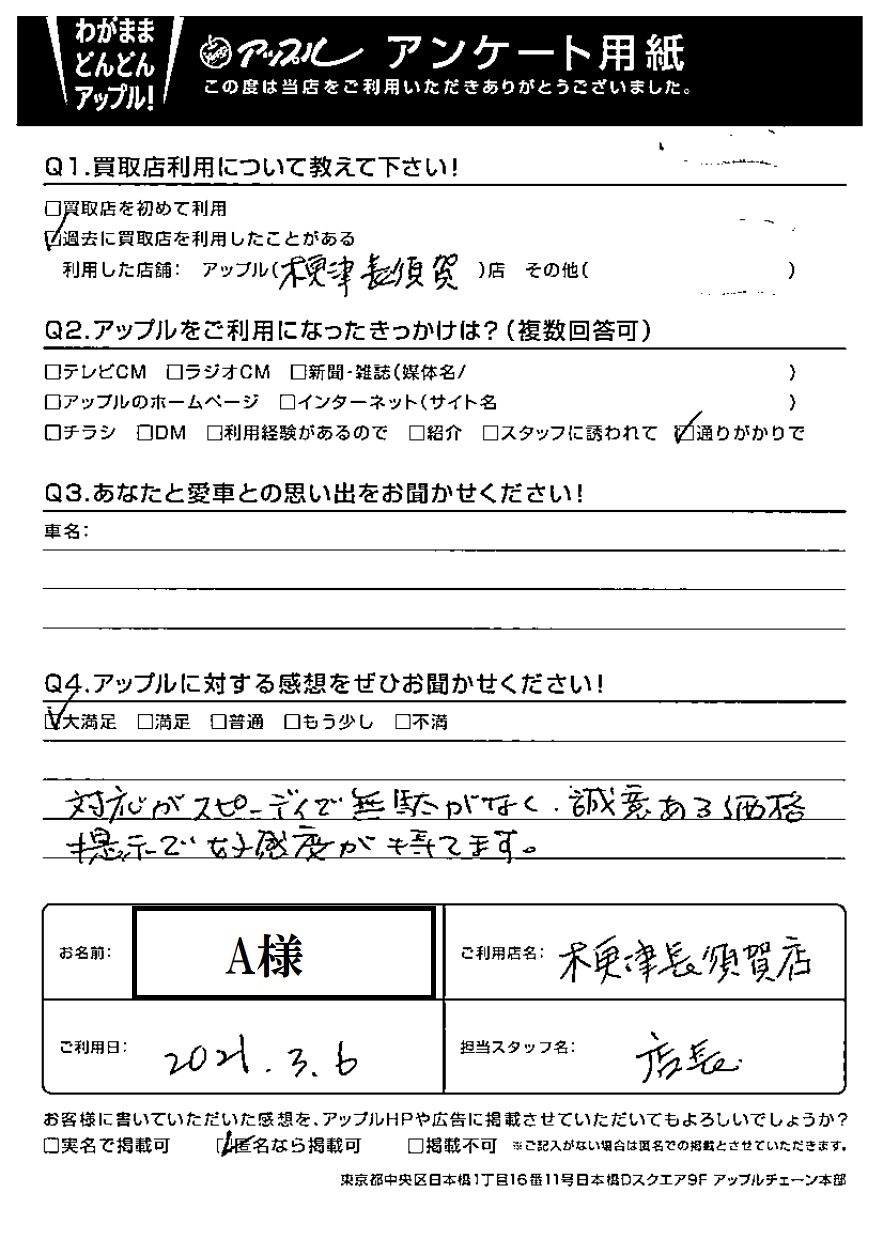 わがまま
どんどん
アップル!
アップル アンケート用紙
この度は当店をご利用いただきありがとうございました。
Q1.買取店利用について教えて下さい!
□買取店を初めて利用
☑過去に買取店を利用したことがある
利用した店舗: アップル(木更津長須賀)店 その他( )
Q2.アップルをご利用になったきっかけは?(複数回答可)
□テレビCM □ラジオCM □新聞・雑誌(媒体名/ )
□アップルのホームページ □インターネット(サイト名 )
□チラシ □DM □利用経験があるので □紹介 □スタッフに誘われて ☑通りがかりで
Q3.あなたと愛車との思い出をお聞かせください!
車名:
Q4.アップルに対する感想をぜひお聞かせください!
☑大満足 □満足 □普通 □もう少し □不満
対応がスピーディで無駄がなく、誠意ある価格
提示で好感度が持てます。
お名前: A様 ご利用店名: 木更津長須賀店
ご利用日: 2021.3.6 担当スタッフ名: 店長
お客様に書いていただいた感想を、アップルHPや広告に掲載させていただいてもよろしいでしょうか?
□実名で掲載可 ☑匿名なら掲載可 □掲載不可 ※ご記入がない場合は匿名での掲載とさせていただきます。
東京都中央区日本橋1丁目16番11号日本橋Dスクエア9F アップルチェーン本部